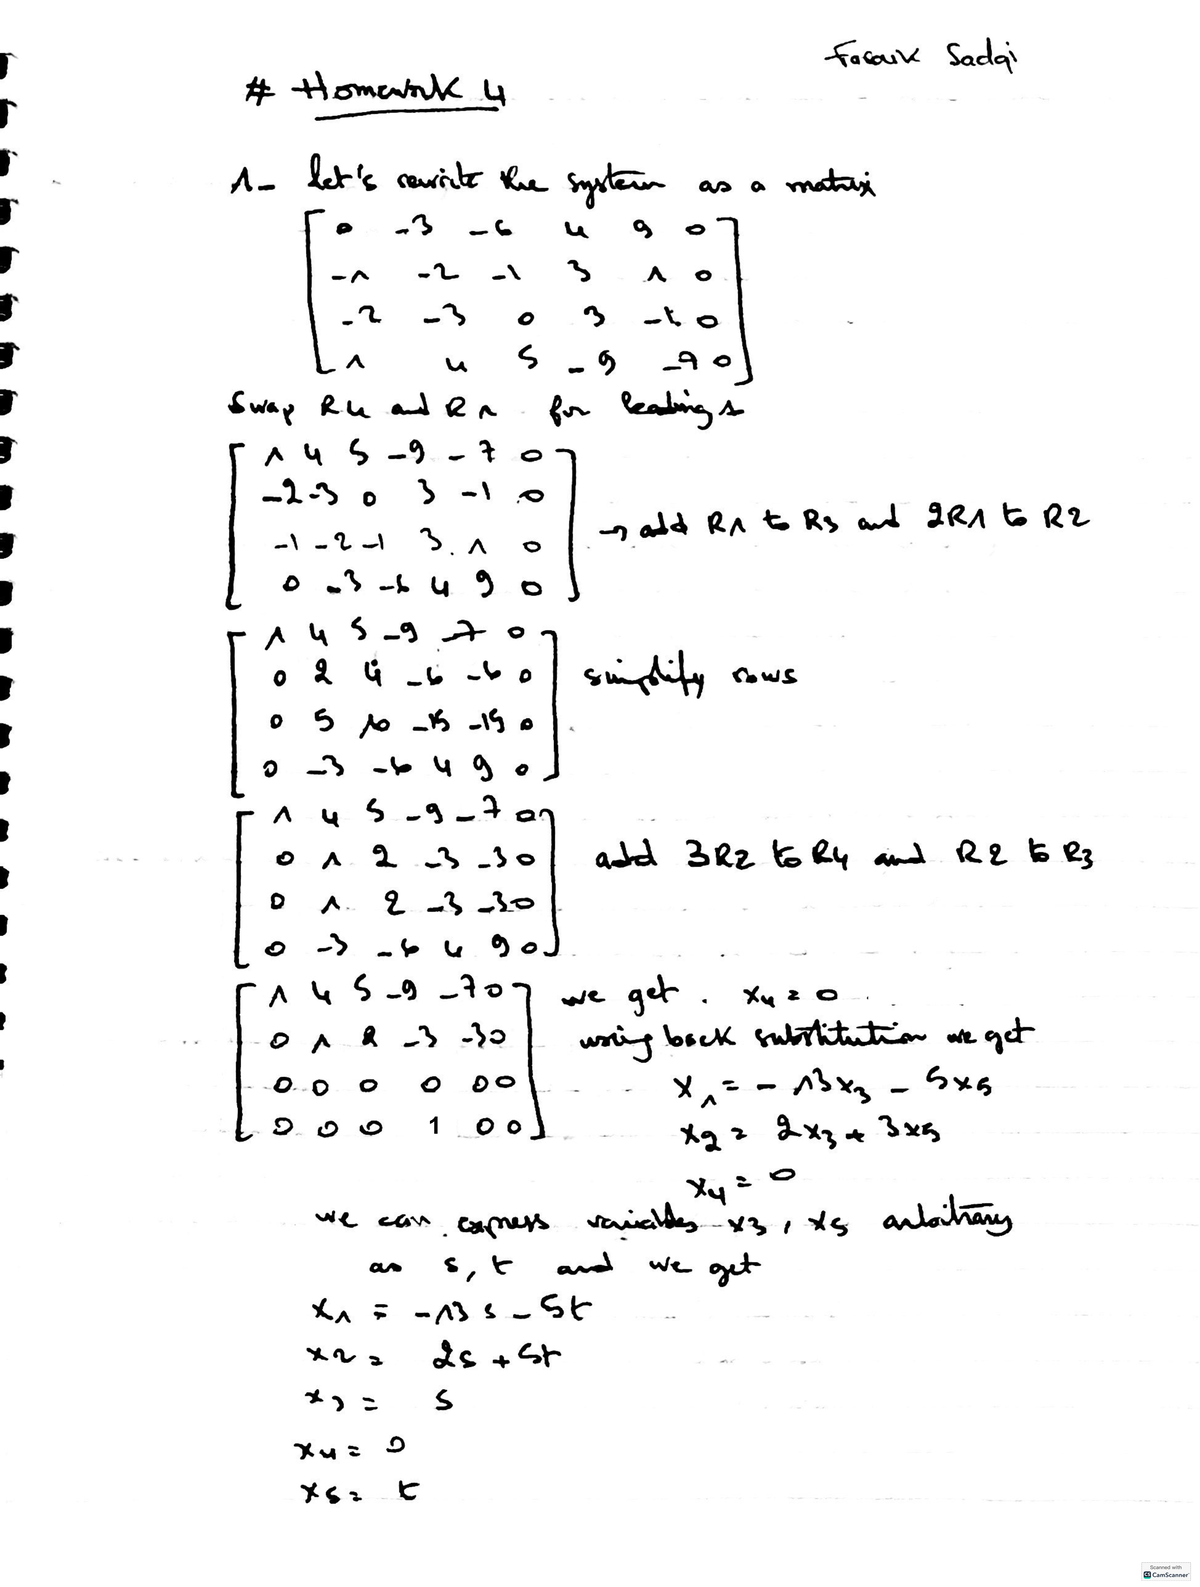 Farouk Sadqi
# Homework 4
1- let's rewrite the system as a matrix
0 -3 -6 4 9 0
-1 -2 -1 3 1 0
-2 -3 0 3 -1 0
1 4 5 -9 -7 0
Swap R4 and R1 for leading 1
1 4 5 -9 -7 0
-2 -3 0 3 -1 0
-1 -2 -1 3 1 0
0 -3 -6 4 9 0
→ add R1 to R3 and 2R1 to R2
1 4 5 -9 -7 0
0 2 4 -6 -6 0
0 5 10 -15 -15 0
0 -3 -6 4 9 0
simplify rows
1 4 5 -9 -7 0
0 1 2 -3 -3 0
0 1 2 -3 -3 0
0 -3 -6 4 9 0
add 3R2 to R4 and R2 to R3
1 4 5 -9 -7 0
0 1 2 -3 -3 0
0 0 0 0 0 0
0 0 0 1 0 0
we get . x4 = 0
using back substitution we get
x1 = - 13x3 - 5x5
x2 = 2x3 + 3x5
x4 = 0
we can express variables x3, x5 arbitrary
as s, t and we get
x1 = -13s - 5t
x2 = 2s + 5t
x3 = s
x4 = 0
x5 = t
Scanned with
CamScanner